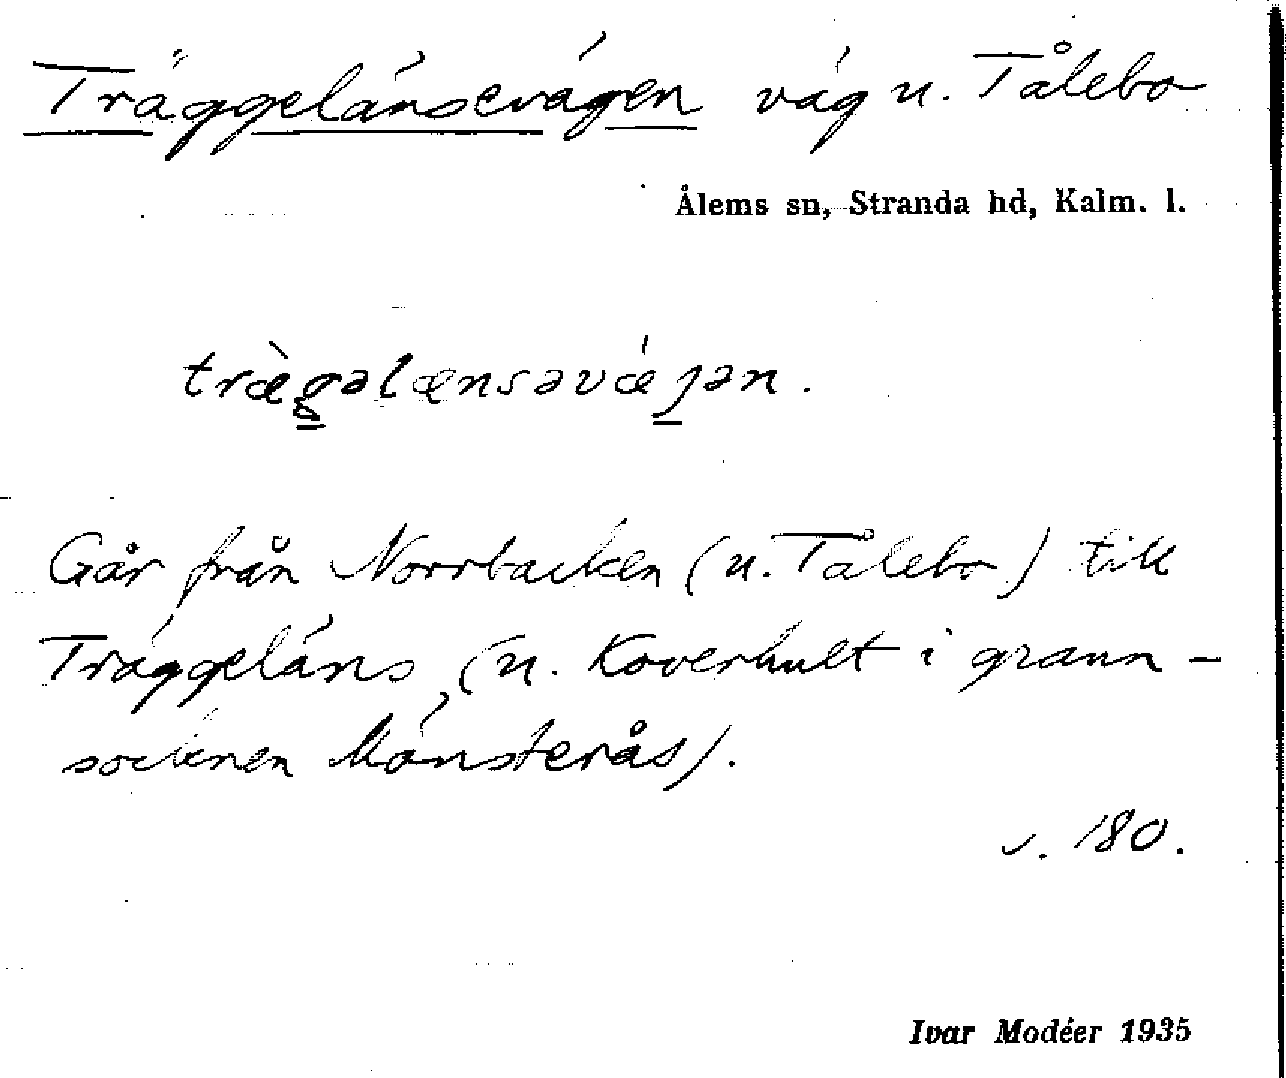 Träggelänsevägen väg u. Tålebo
Ålems sn, Stranda hd, Kalm. l.
træ̀gəlænsəvǽjən.
Går från Norrbacken (u. Tålebo) till
Träggeläns (u. Koverhult i grann-
socknen Mönsterås).
v. 180.
Ivar Modéer 1935